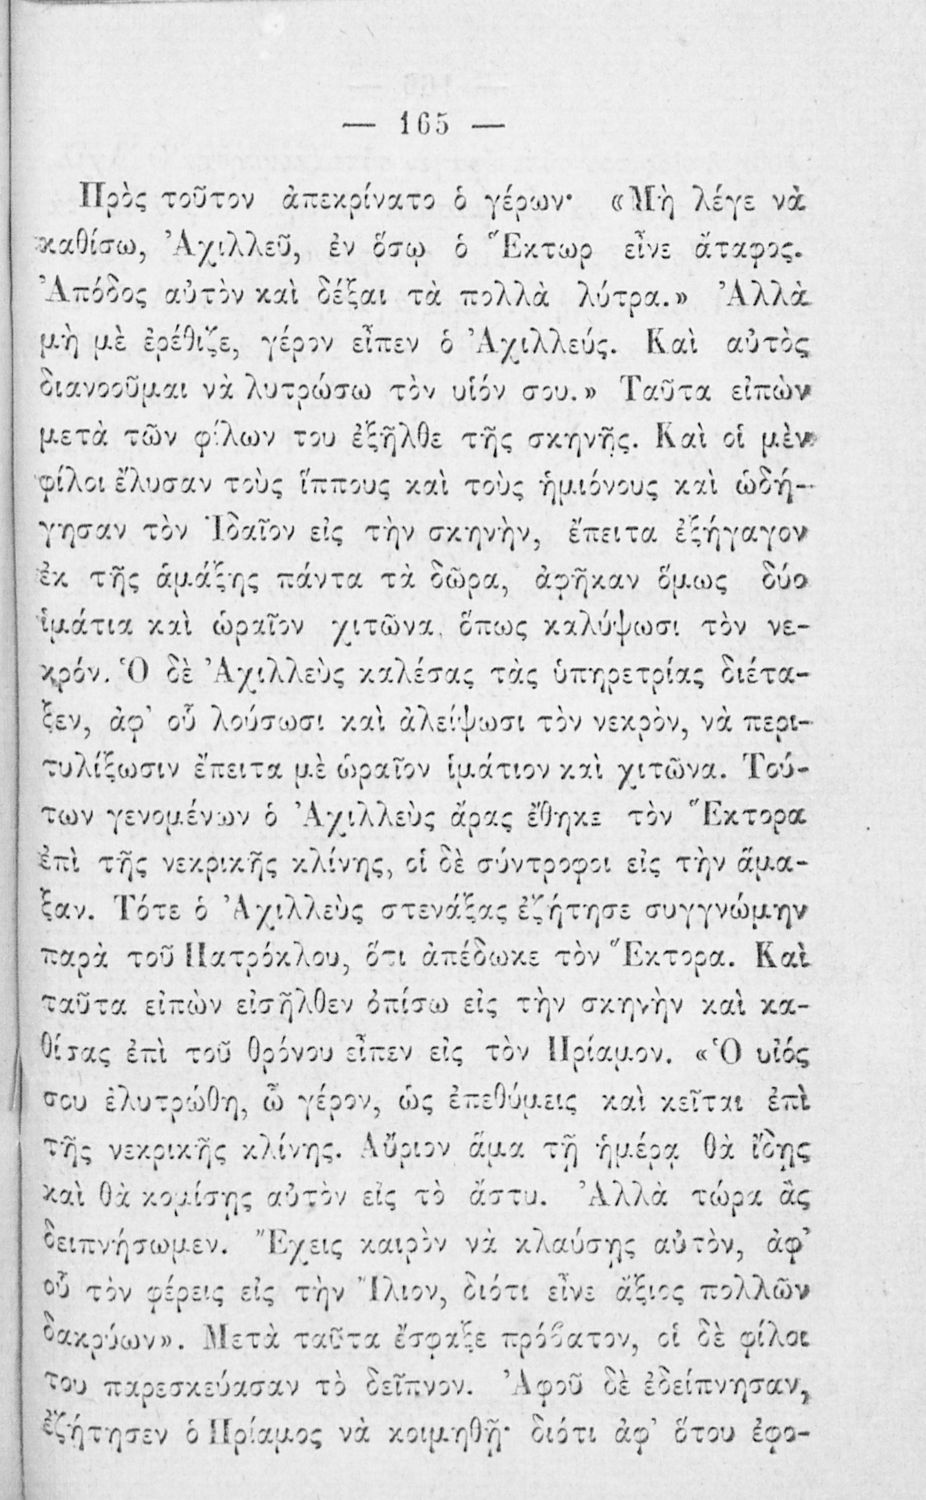 — 165 —
Πρὸς τοῦτον ἀπεκρίνατο ὁ γέρων· «Μὴ λέγε νὰ
καθίσω, Ἀχιλλεῦ, ἐν ὅσῳ ὁ Ἕκτωρ εἶνε ἄταφος.
Ἀπόδος αὐτὸν καὶ δέξαι τὰ πολλὰ λύτρα.» Ἀλλὰ
μὴ μὲ ἐρέθιζε, γέρον εἶπεν ὁ Ἀχιλλεύς. Καὶ αὐτὸς
διανοοῦμαι νὰ λυτρώσω τὸν υἱόν σου.» Ταῦτα εἰπὼν
μετὰ τῶν φίλων του ἐξῆλθε τῆς σκηνῆς. Καὶ οἱ μὲν
φίλοι ἔλυσαν τοὺς ἵππους καὶ τοὺς ἡμιόνους καὶ ὡδή-
γησαν τὸν Ἰδαῖον εἰς τὴν σκηνὴν, ἔπειτα ἐξήγαγον
ἐκ τῆς ἁμάξης πάντα τὰ δῶρα, ἀφῆκαν ὅμως δύο
ἱμάτια καὶ ὡραῖον χιτῶνα, ὅπως καλύψωσι τὸν νε-
κρόν. Ὁ δὲ Ἀχιλλεὺς καλέσας τὰς ὑπηρετρίας διέτα-
ξεν, ἀφ’ οὗ λούσωσι καὶ ἀλείψωσι τὸν νεκρὸν, νὰ περι-
τυλίξωσιν ἔπειτα μὲ ὡραῖον ἱμάτιον καὶ χιτῶνα. Τού-
των γενομένων ὁ Ἀχιλλεὺς ἄρας ἔθηκε τὸν Ἕκτορα
ἐπὶ τῆς νεκρικῆς κλίνης, οἱ δὲ σύντροφοι εἰς τὴν ἅμα-
ξαν. Τότε ὁ Ἀχιλλεὺς στενάξας ἐζήτησε συγγνώμην
παρὰ τοῦ Πατρόκλου, ὅτι ἀπέδωκε τὸν Ἕκτορα. Καὶ
ταῦτα εἰπὼν εἰσῆλθεν ὀπίσω εἰς τὴν σκηνὴν καὶ κα-
θίσας ἐπὶ τοῦ θρόνου εἶπεν εἰς τὸν Πρίαμον. «Ὁ υἱός
σου ἐλυτρώθη, ὦ γέρον, ὡς ἐπεθύμεις καὶ κεῖται ἐπὶ
τῆς νεκρικῆς κλίνης. Αὔριον ἅμα τῇ ἡμέρᾳ θὰ ἴδῃς
καὶ θὰ κομίσῃς αὐτὸν εἰς τὸ ἄστυ. Ἀλλὰ τώρα ἂς
δειπνήσωμεν. Ἔχεις καιρὸν νὰ κλαύσῃς αὐτὸν, ἀφ’
οὗ τὸν φέρεις εἰς τὴν Ἴλιον, διότι εἶνε ἄξιος πολλῶν
δακρύων». Μετὰ ταῦτα ἔσφαξε πρόβατον, οἱ δὲ φίλοι
του παρεσκεύασαν τὸ δεῖπνον. Ἀφοῦ δὲ ἐδείπνησαν,
ἐζήτησεν ὁ Πρίαμος νὰ κοιμηθῇ· διότι ἀφ’ ὅτου ἐφο-